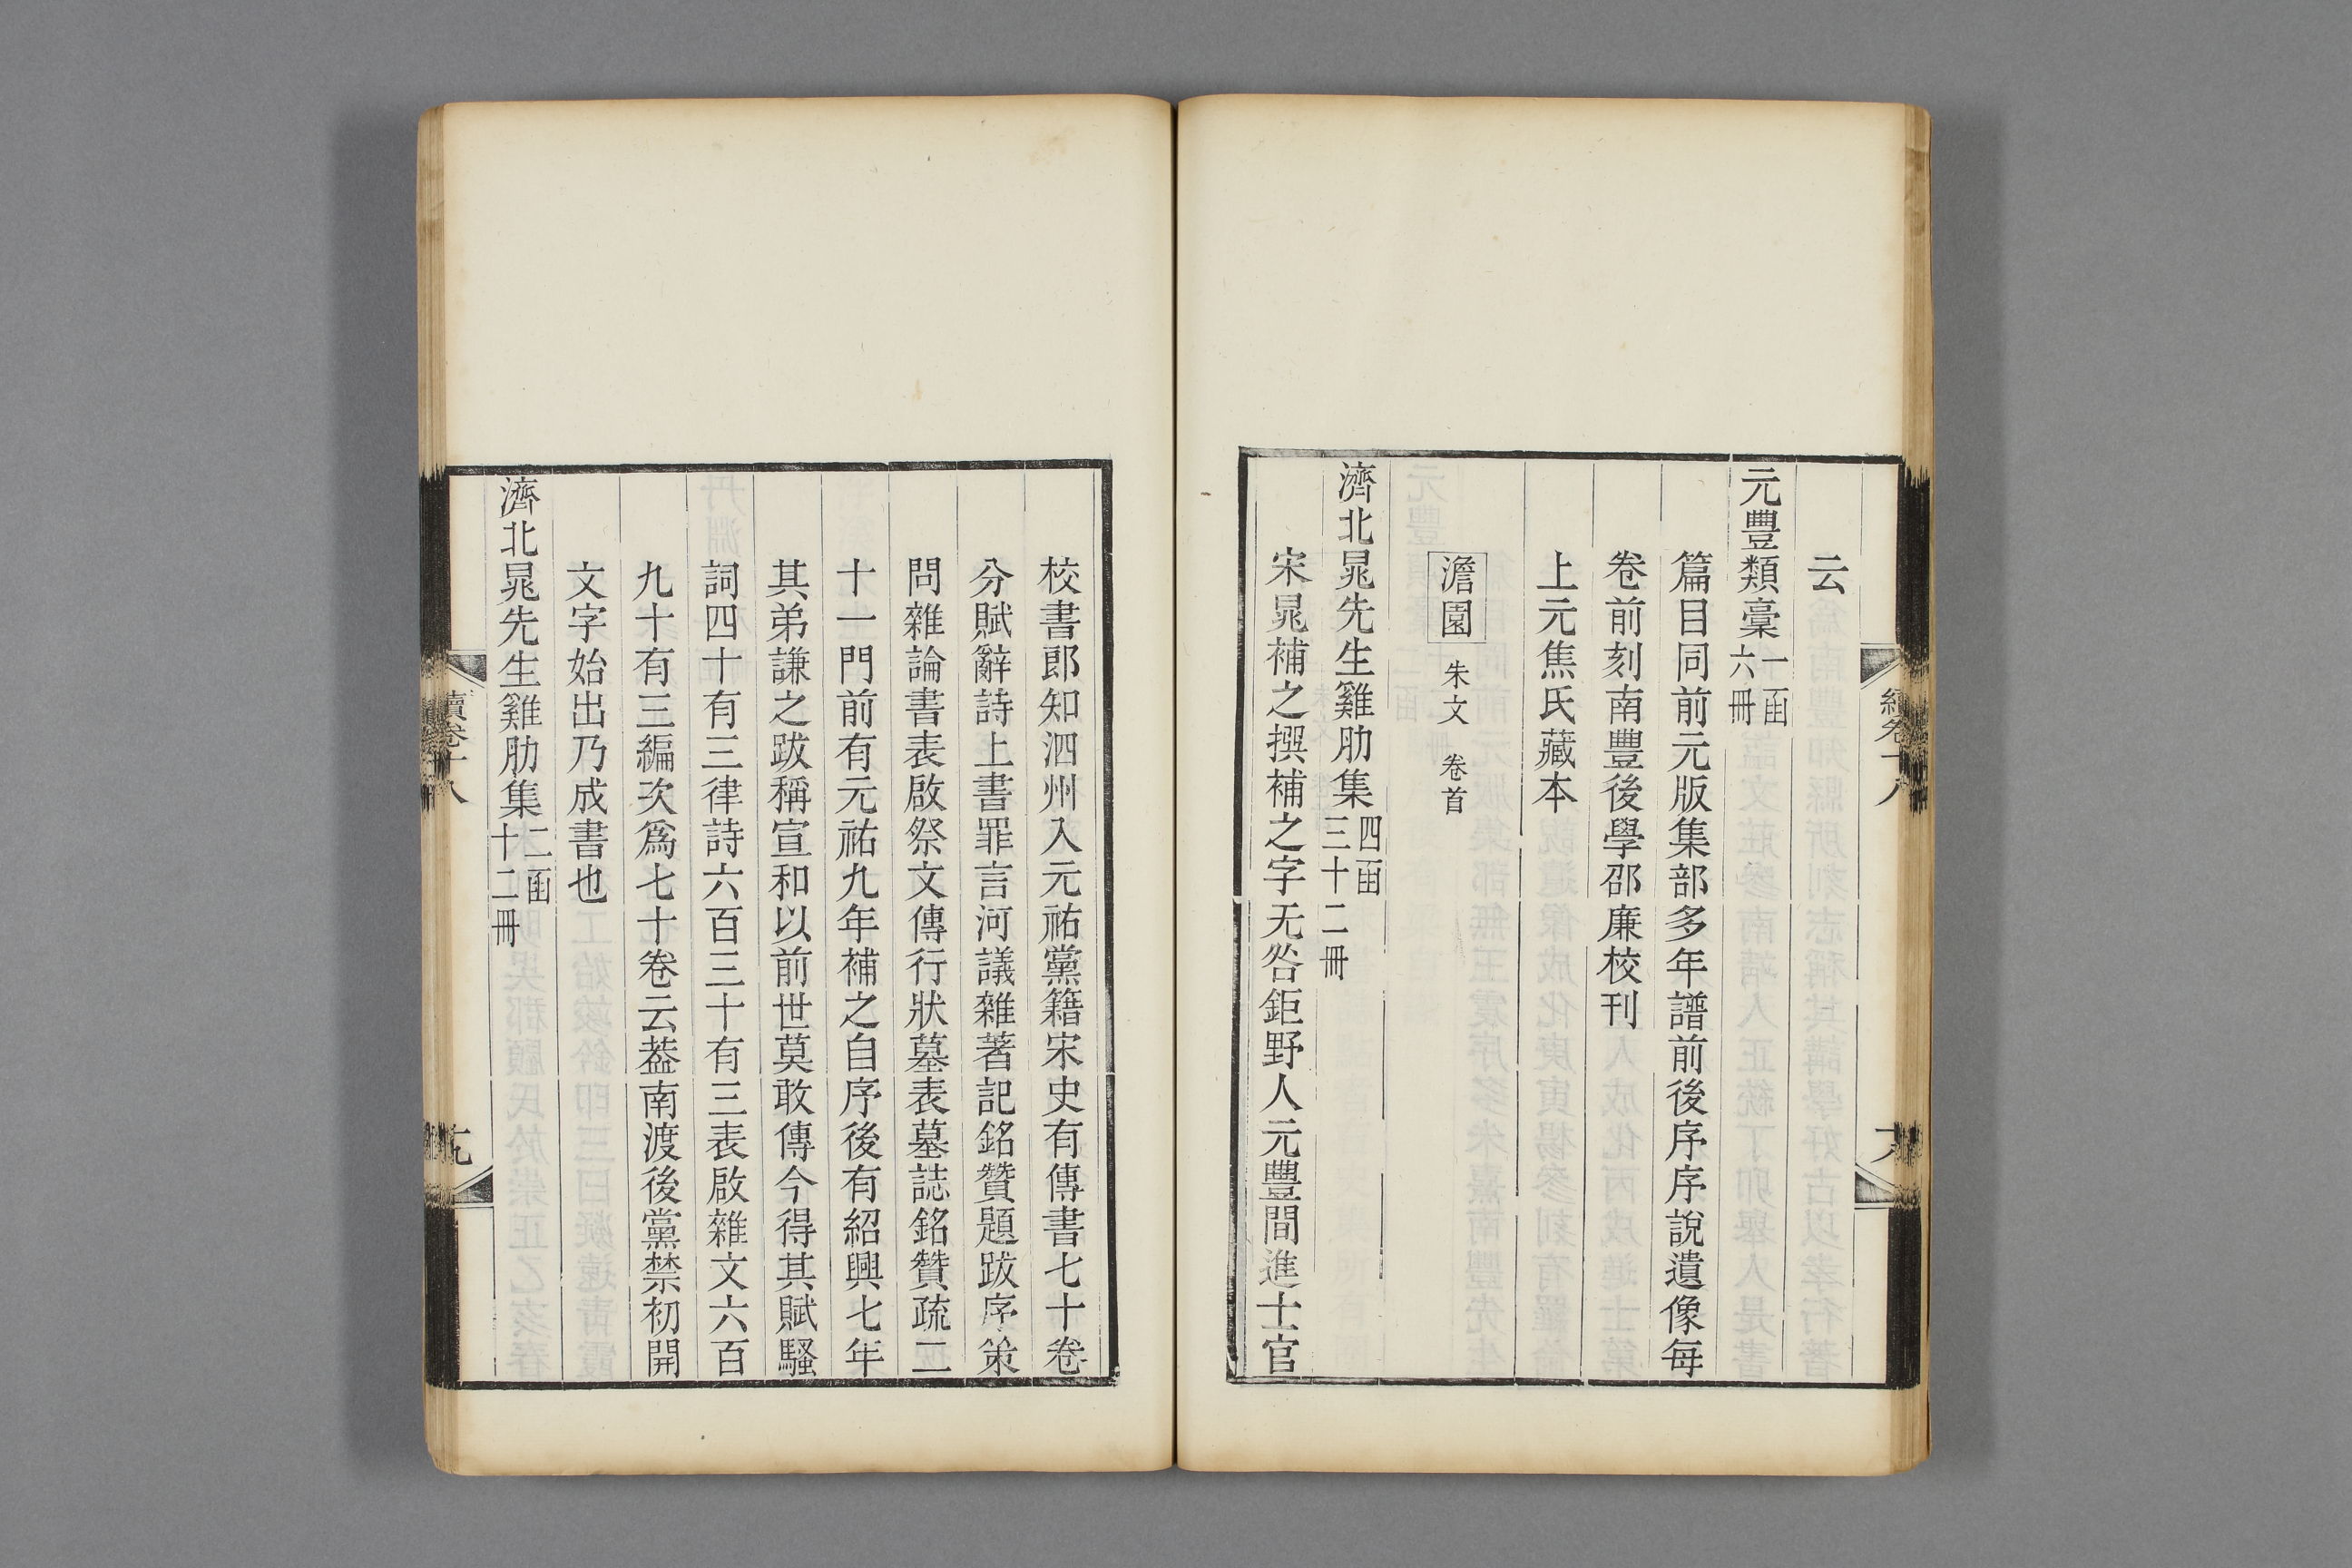 云
元豐類稾一函六冊
篇目同前元版集部多年譜前後序序說遺像每
卷前刻南豐後學邵廉校刊
上元焦氏藏本
澹園 朱文 卷首
濟北晁先生雞肋集四函三十二冊
宋晁補之撰補之字无咎鉅野人元豐間進士官
校書郎知泗州入元祐黨籍宋史有傳書七十卷
分賦辭詩上書罪言河議雜著記銘贊題跋序策
問雜論書表啟祭文傳行狀墓表墓誌銘贊疏二
十一門前有元祐九年補之自序後有紹興七年
其弟謙之跋稱宣和以前世莫敢傳今得其賦騷
詞四十有三律詩六百三十有三表啟雜文六百
九十有三編次爲七十卷云葢南渡後黨禁初開
文字始出乃成書也
濟北晁先生雞肋集二函十二冊
續卷十八